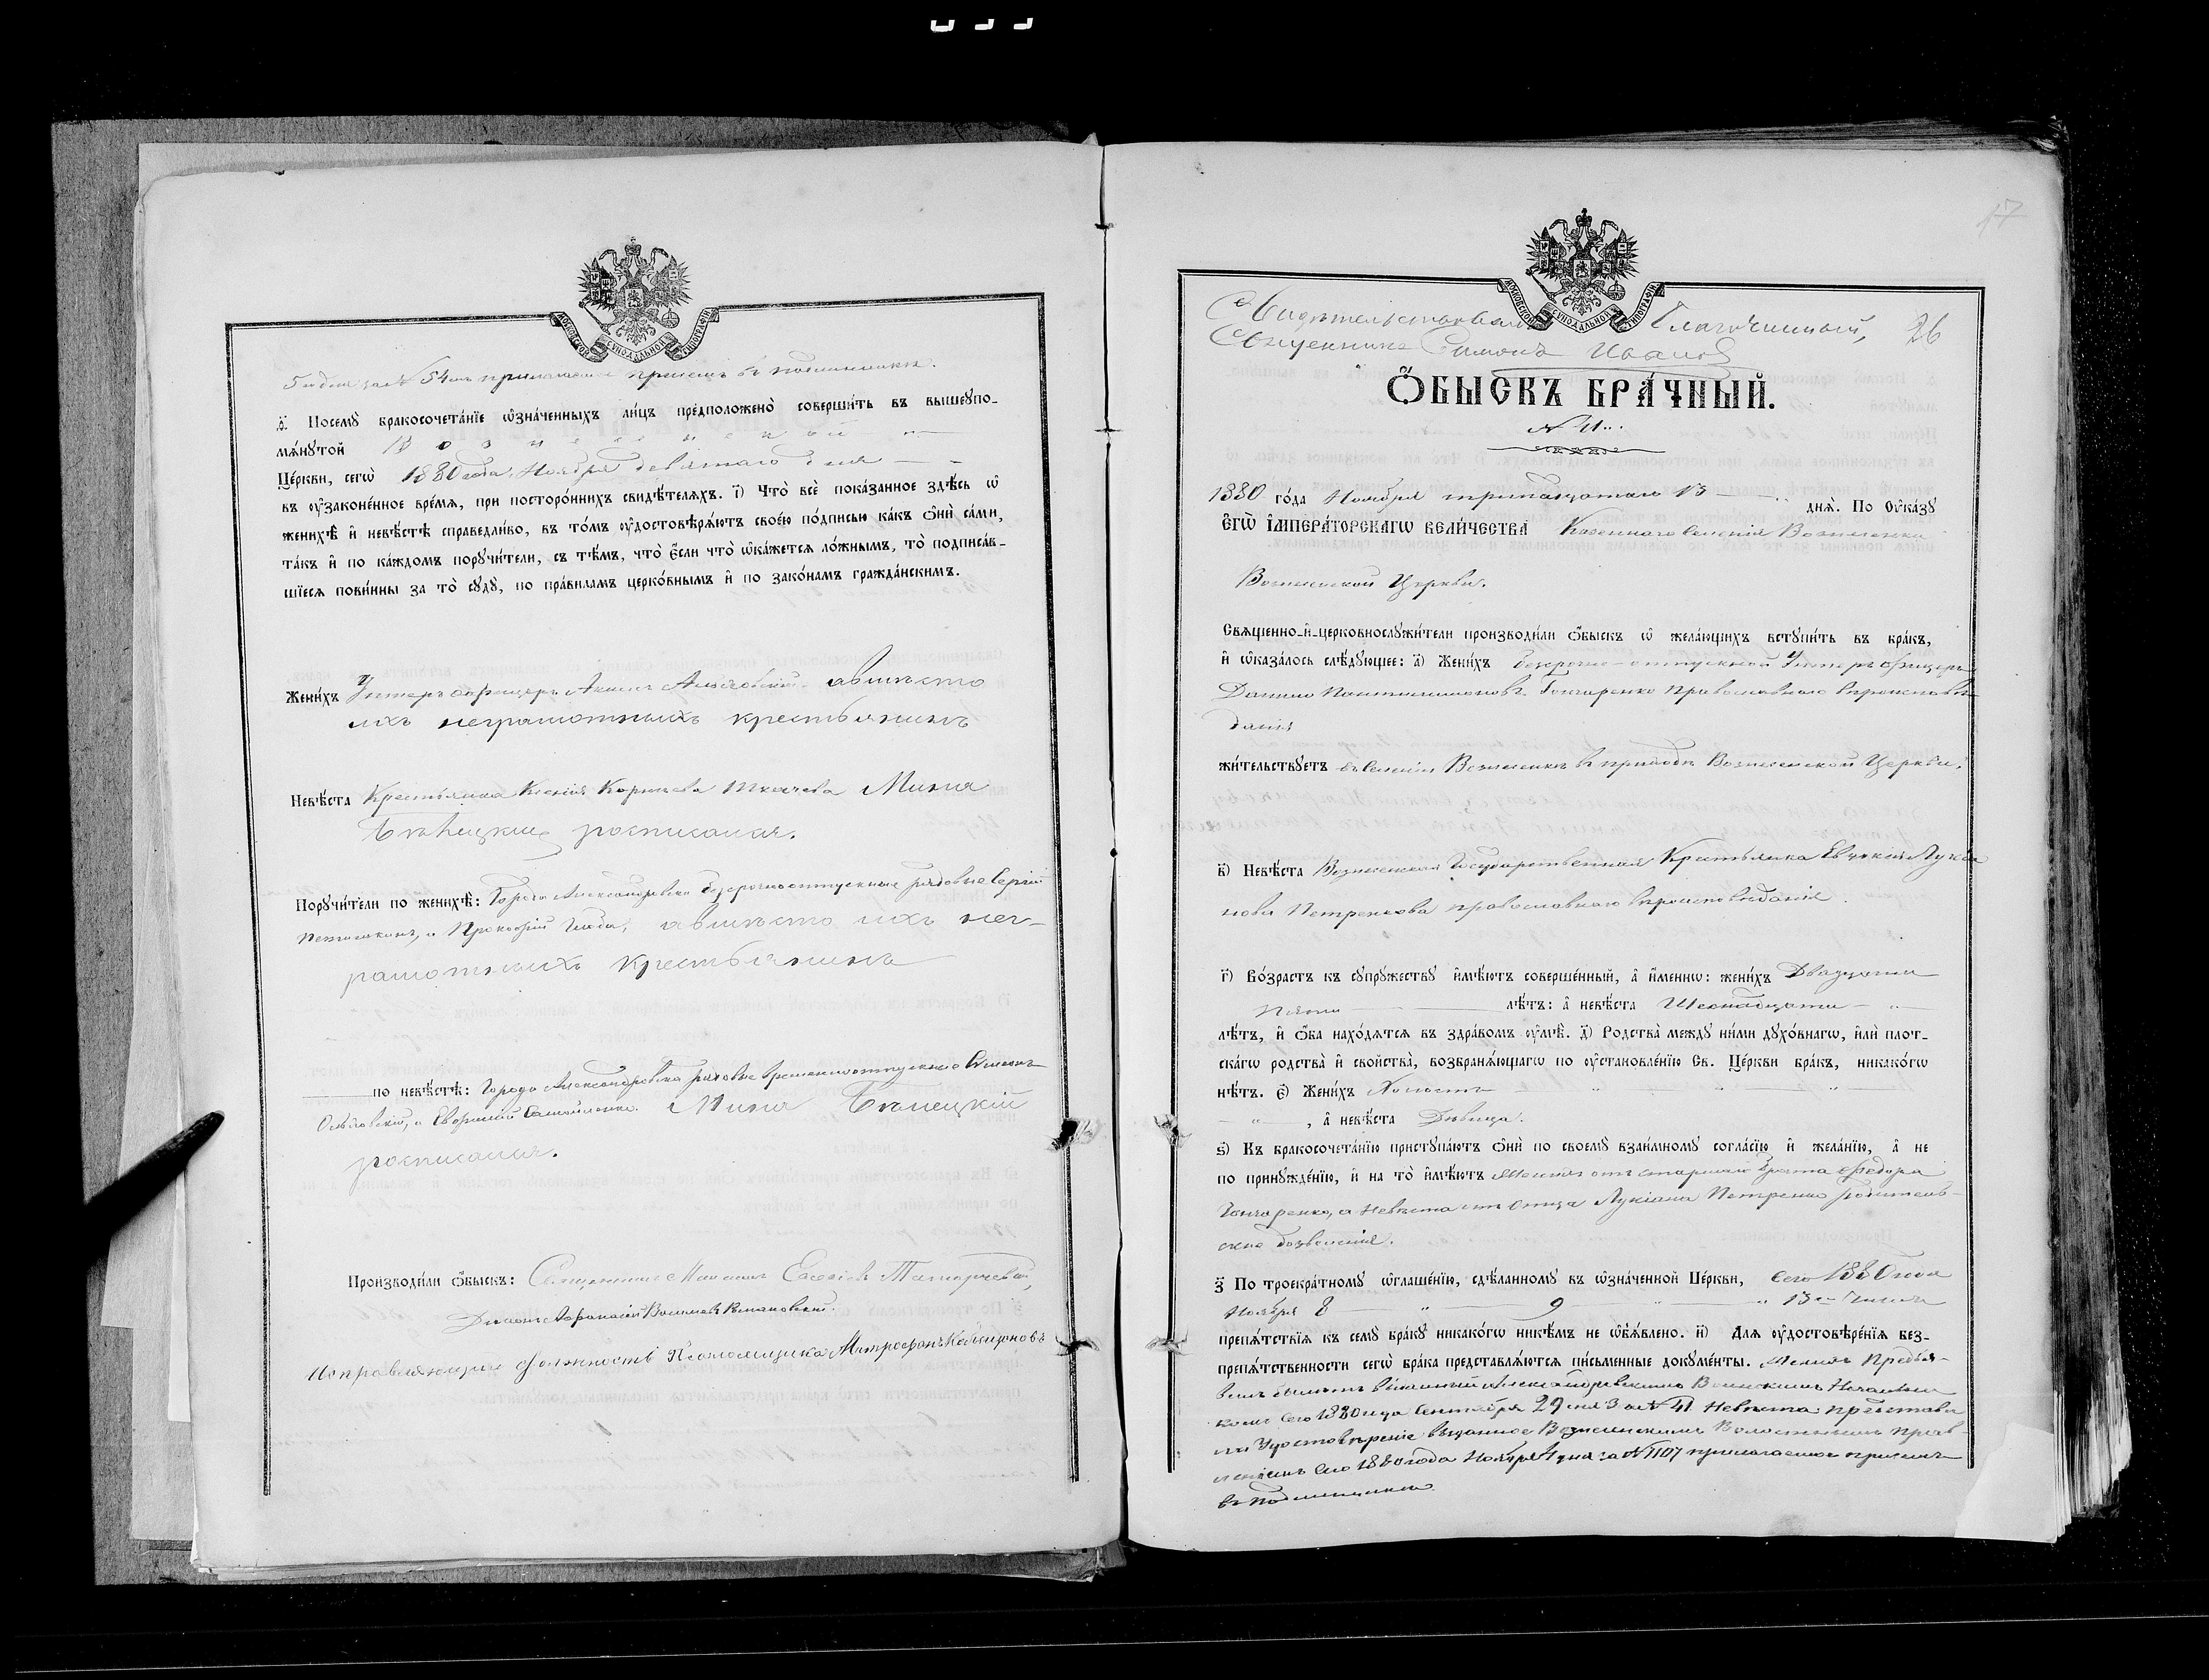 5 дня за № 54 мъ прилагаемое присемъ въ подлинникѣ.
МОСКОВСКОЙ СѴНОДАЛЬНОЙ ТИПОГРАФІИ
д҃. Посемꙋ̀ бракосочета́нїе ѡ҆зна́ченныхъ ли́цъ предположено̀ соверши́ть въ вышеꙋпо-
мѧ́нꙋтой Вознесенской
Це́ркви, сегѡ̀ 1880 года, Ноября девятаго дня
въ ᲂу҆зако́ненное вре́мѧ, при посторо́ннихъ свидѣ́телѧхъ. і҃) Что̀ всѐ пока́занное здѣ́сь ѡ҆
женихѣ̀ и҆ невѣ́стѣ справедли́во, въ то́мъ ᲂу҆достовѣрѧ́ютъ свое́ю по́дписью ка́къ ѻ҆нѝ са́ми,
та́къ и҆ по ка́ждомъ порꙋчи́тели, съ тѣ́мъ, что̀ є҆́сли что̀ ѡ҆ка́жетсѧ ло́жнымъ, то̀ подписа́в-
шїесѧ пови́нны за то̀ сꙋдꙋ̀, по пра́виламъ церко́внымъ и҆ по зако́намъ гражда́нскимъ.
Жени́хъ Унтеръ офицеръ авмѣсто
ихъ неграмотныхъ крестьянинъ
Невѣ́ста Крестьянка Ксенія Ткачева Мина
росписался.
Порꙋчи́тели по женихѣ̀: Города Александровска безсрочноотпускные рядовые Сергій
и Прокофій авмѣсто ихъ нег-
рамотныхъ крестьянинъ
по невѣ́стѣ: Города Александровска рядовые временноотпускные
и Самойленко. Мина
росписался.
Производи́ли ѻ҆́быскъ: Священникъ
Діаконъ Афанасій
Исправляющій должность Псаломщика Митрофанъ
17
МОСКОВСКОЙ СѴНОДАЛЬНОЙ ТИПОГРАФІИ
Свидѣтельствовалъ Благочинный, 26
Священникъ Симонъ Ивановъ
Ѻ҆́БЫСКЪ БРА́ЧНЫЙ.
№ 41.
1880 го́да Ноября тринадцатаго 13 днѧ̀. По ᲂу҆ка́зꙋ
є҆гѡ̀ і҆мпера́торскагѡ вели́чества Казеннаго селенія Вознесенки
Вознесенской Церкви.
Свѧще́нно-и҆-церковнослꙋжи́тели производи́ли ѻ҆́быскъ ѡ҆ жела́ющихъ встꙋпи́ть въ бра́къ,
и҆ ѡ҆каза́лось слѣ́дꙋющее: а҃) Жени́хъ безсрочно-отпускной Унтеръ офицеръ
Данило Пантелимоновъ Гончаренко Православнаго вѣроисповѣ-
данія
жи́тельствꙋетъ въ селеніи Вознесенкѣ въ приходѣ Вознесенской Церкви.
в҃) Невѣ́ста Вознесенская Государственная Крестьянка Евдокія Лукія-
нова Петренкова православнаго вѣроисповѣданія.
г҃) Во́зрастъ къ сꙋпрꙋ́жествꙋ и҆мѣ́ютъ соверше́нный, а҆ и҆́меннѡ: жени́хъ Двадцати
пяти лѣ́тъ: а҆ невѣ́ста Шеснадцати
лѣ́тъ, и҆ ѻ҆́ба нахо́дѧтсѧ въ здра́вомъ ᲂу҆мѣ̀. д҃) Родства̀ междꙋ ни́ми дꙋхо́внагѡ, и҆лѝ пло́т-
скагѡ родства̀ и҆ свойства̀, возбранѧ́ющагѡ по ᲂу҆становле́нїю Св. Це́ркви бра́къ, никако́гѡ
нѣ́тъ. є҃) Жени́хъ Холостъ
, а҆ невѣ́ста Дѣвица.
ѕ҃) Къ бракосочета́нїю пристꙋпа́ютъ ѻ҆нѝ по своемꙋ̀ взаи́мномꙋ согла́сїю и҆ жела́нїю, а҆ не
по принꙋжде́нїю, и҆ на то̀ и҆мѣ́ютъ Женихъ отъ старшаго брата Федора
Гончаренко, а невѣста отъ отца Лукіана Петренко родитель-
ское дозволеніе.
з҃ По троекра́тномꙋ ѡ҆глаше́нїю, сдѣ́ланномꙋ въ ѡ҆зна́ченной Це́ркви, сего 1880 года
Ноября 8 9 13 го числа
препѧ́тствїѧ къ семꙋ̀ бра́кꙋ никако́гѡ никѣ́мъ не ѡ҆б̾ѧ́влено. и҃) Длѧ ᲂу҆достовѣре́нїѧ без-
препѧ́тственности сегѡ̀ бра́ка представлѧ́ютсѧ пи́сьменные докꙋме́нты. Женихъ Предъя-
вилъ билетъ выданный Александровскимъ Воинскимъ Начальни-
комъ сего 1880 года Сентября 29 дня за № 41 Невѣста представи-
ла Удостовѣреніе выданное Вознесенскимъ Волостнымъ прав-
леніемъ сего 1880 года Ноября 4 дня за № 1107 прилагаемое присемъ
въ подлинникѣ.